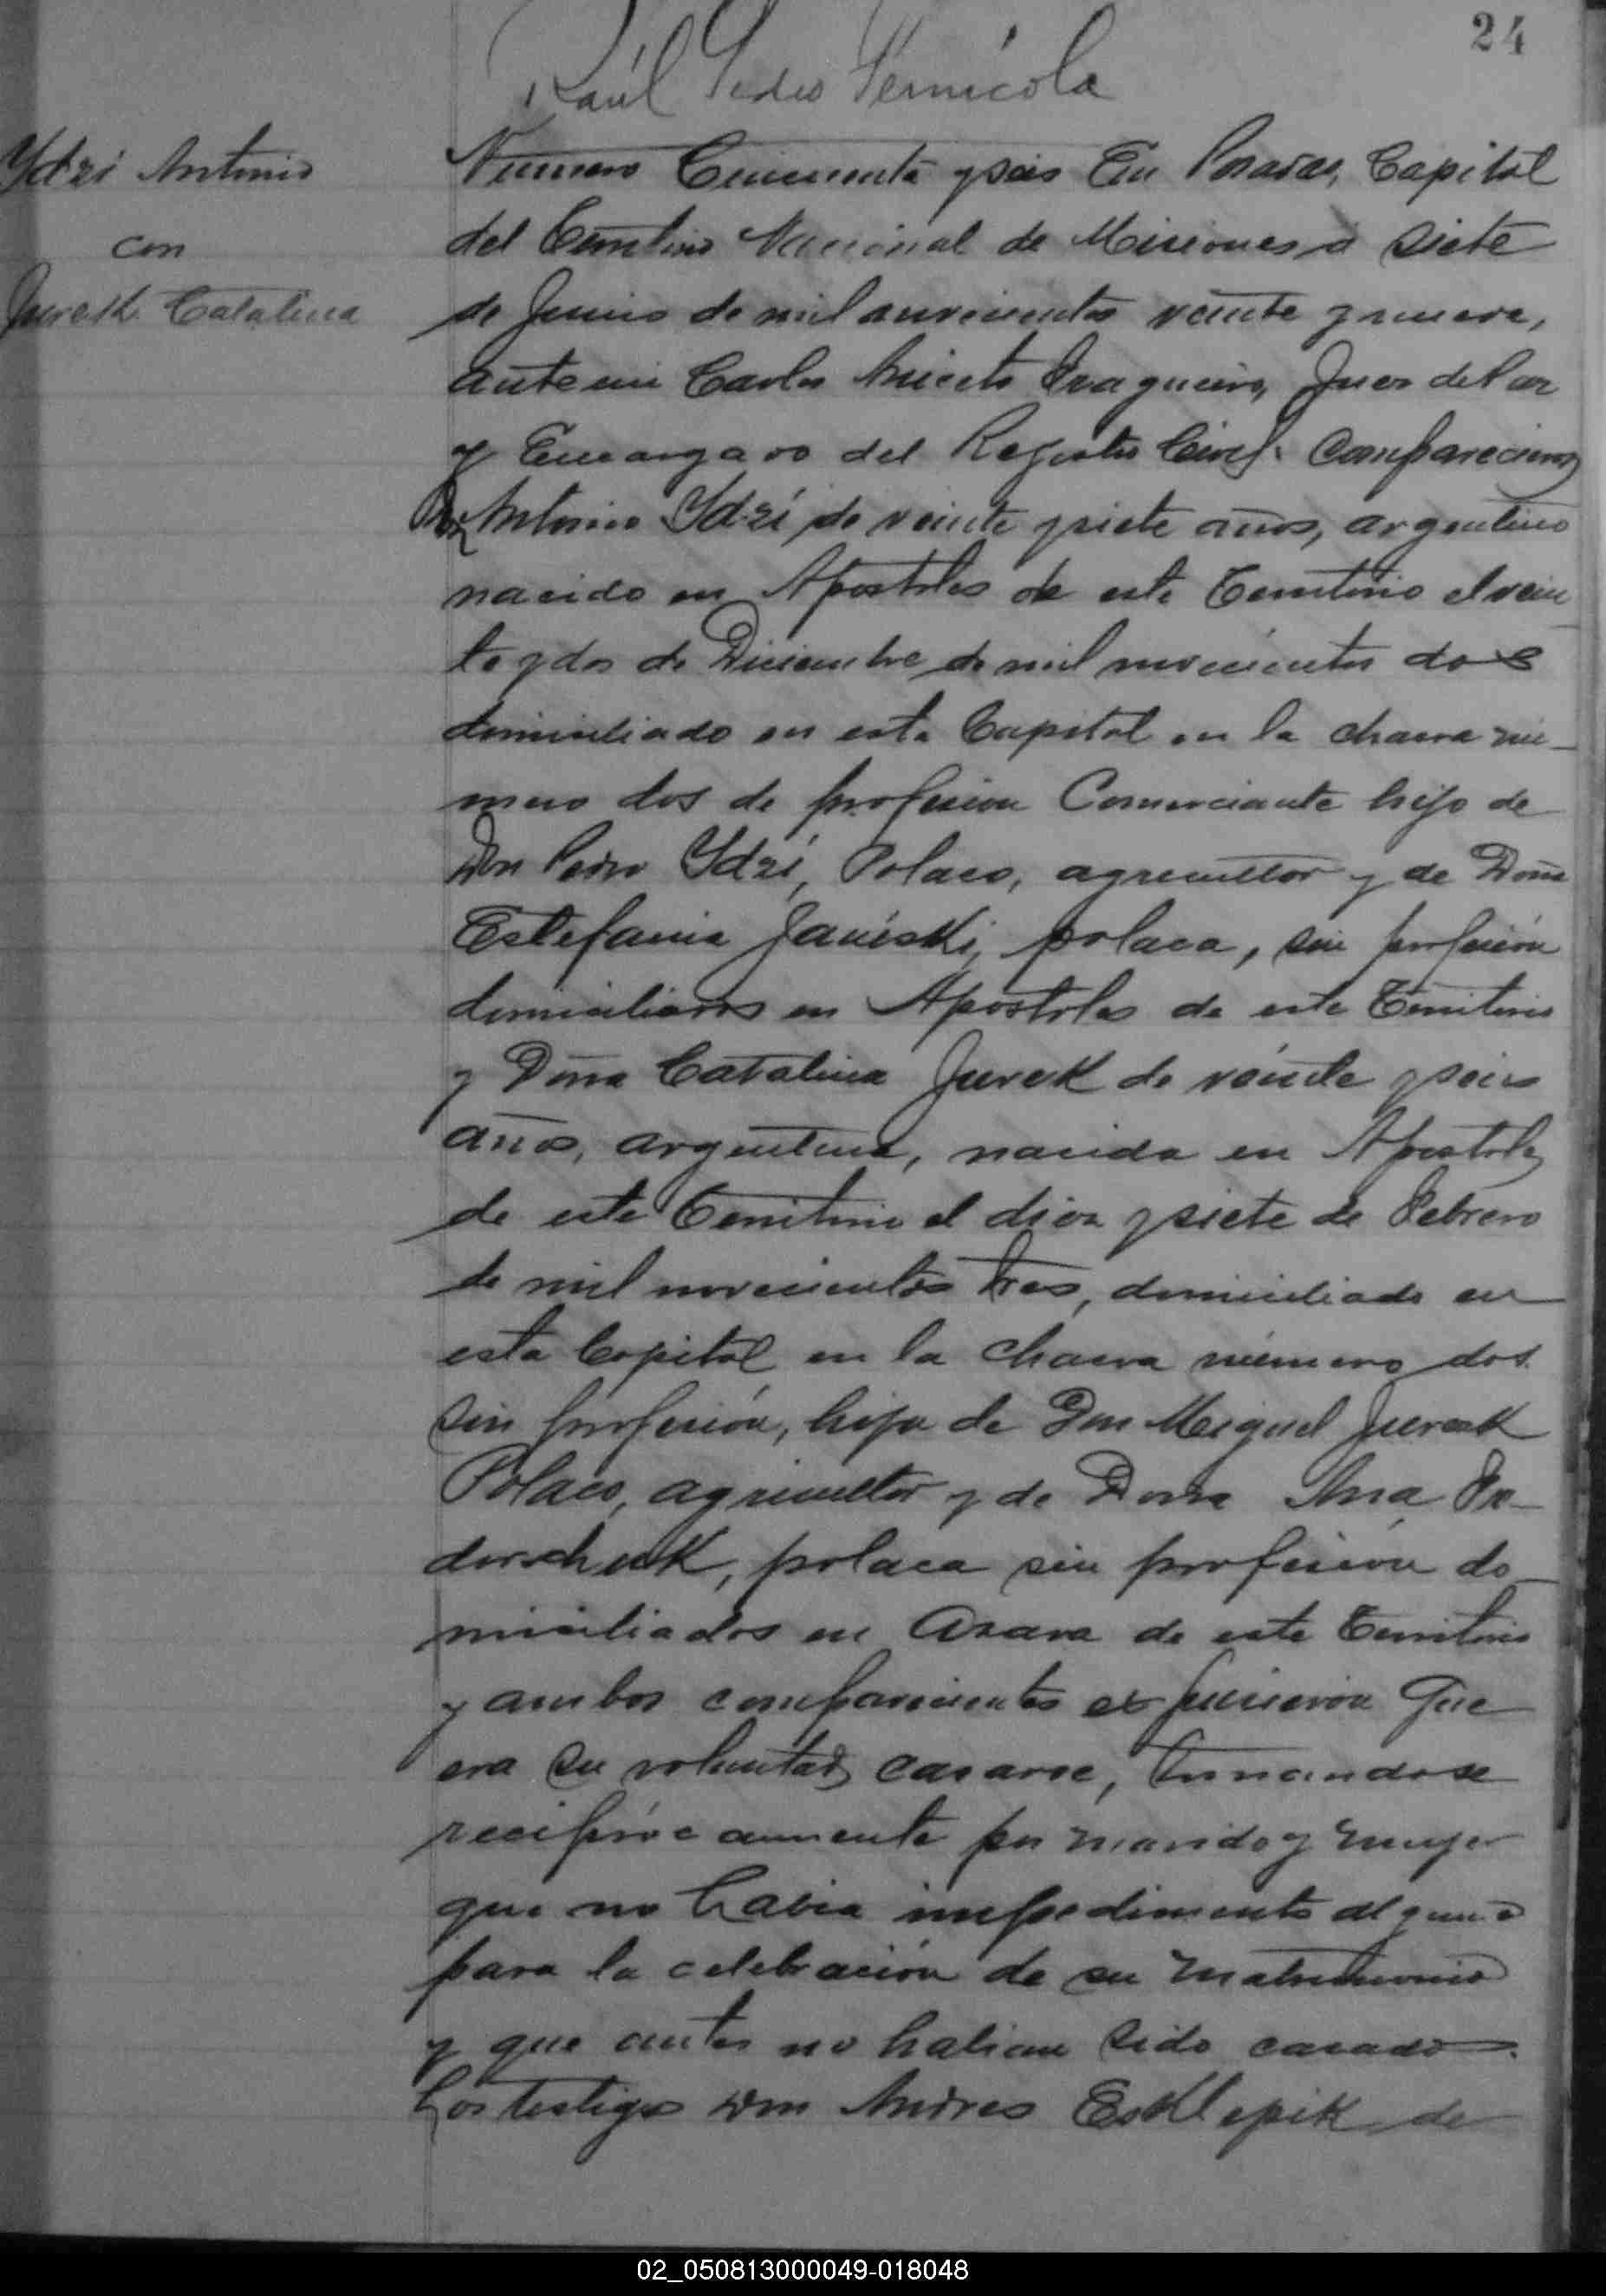 24
Raúl Pedro Pernícola
Ydzi Antonio
con
Jurek Catalina
Numero Cincuenta y seis En Posadas, Capital
del Territorio Nacional de Misiones a siete
de Junio de mil novecientos veinte y nueve,
ante mi Carlos Aniceto Fragueiro, Juez de Paz
y Encargado del Registro Civil. Comparecieron
Don Antonio Ydzí de veinte y siete años, argentino
nacido en Apostoles de este Territorio el vein
te y dos de Diciembre de mil novecientos dos
domiciliado en esta Capital en la chacra nú-
mero dos de profesion Comerciante hijo de
Don Pedro Ydzí, Polaco, agricultor y de Doña
Estefania Janiski, polaca, sin profesión
domiciliados en Apostoles de este Territorio
y Doña Catalina Jurek de veinte y seis
años, argentina, nacida en Apostoles
de este Territorio el diez y siete de Febrero
de mil novecientos tres, domiciliada en
esta Capital en la chacra número dos
sin profesión, hija de Don Miguel Jurek
Polaco, agricultor y de Doña Ana
dorschuk, polaca sin profesión do
miciliados en Azara de este Territorio
y ambos comparecientes expusieron que
era su voluntad casarse, tomandose
recíprocamente por marido y mujer
que no habia impedimento alguno
para la celebración de su matrimonio
y que antes no habian sido casados.
Los testigos Don Andres Esklepik de
02_050813000049-018048